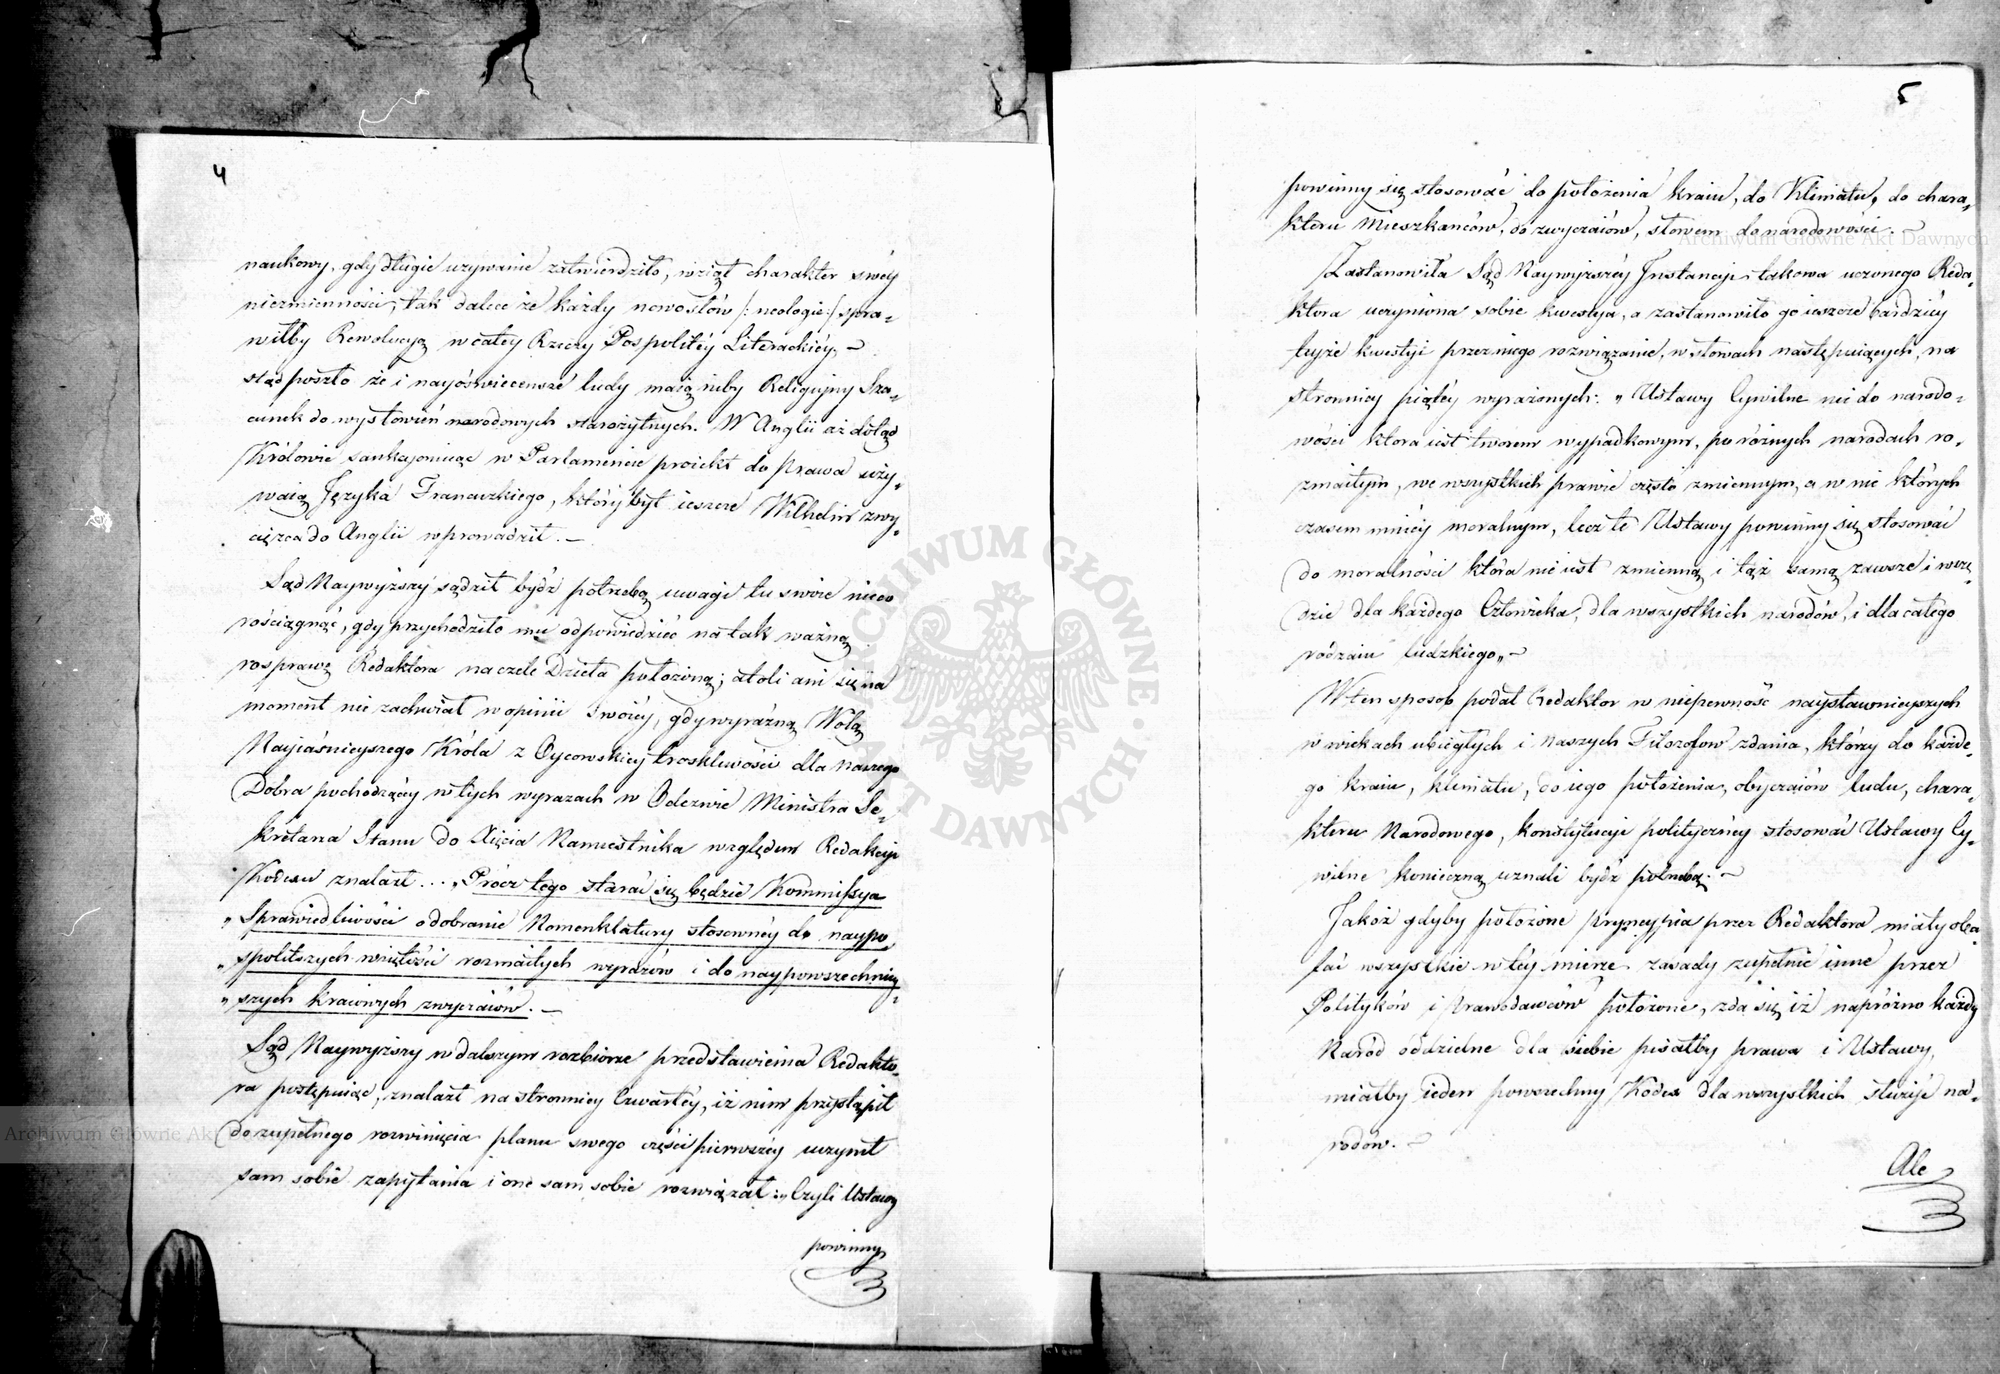 4
naukowy, gdy długie używanie zatwierdziło, wziął charakter swéy
niezmienności, tak dalece że każdy nowosłów /: neologie :/ spra-
wiłby Rewolucyą w całey Rzeczy Pospolitéy Literackiéy. —
stąd poszło że i nayoświecensze ludy maią niby Religiyny Sza-
cunek do wysłowień narodowych starożytnych. W Anglii aż dotąd
Królowie sankcjonuiąc w Parlamencie proiekt do prawa uży-
waią Języka Francuzkiego, który był ieszcze Wilhelm zwy-
cięzca do Anglii wprowadził. —
Sąd Naywyższy sądził bydź potrzebą uwagi tu swoie nieco
rościągnąć, gdy przychodziło mu odpowiedzieć na tak ważną
rosprawę Redaktora na czele Dzieła położoną; atoli ani się na
moment nie zachwiał w opinii swoiéy, gdy wyraźną Wolą
Nayiaśnieyszego Króla z Oycowskiey troskliwości dla naszego
Dobra pochodzącéy w tych wyrazach w Odezwie Ministra Se-
kretarza Stanu do Xięcia Namiestnika względem Redakcyi
Kodexu znalazł ... „Prócz tego starać się będzie Kommissya
„Sprawiedliwości o dobranie Nomenklatury stosownéy do naypo
„spolitszych wziętości rozmaitych wyrazów i do naypowszechniey-
„szych kraiowych zwyczaiów. —
Sąd Naywyższy w dalszym rozbiorze przedstawienia Redakto-
ra postępuiąc, znalazł na stronnicy Czwartéy, iż nim przystąpił
do zupełnego rozwinięcia planu swego części pierwszéy uczynił
sam sobie zapytania i one sam sobie rozwiązał: „Czyli Ustawy
powinny
5
powinny się stosować do położenia kraiu, do Klimatu, do chara-
kteru Mieszkańców, do zwyczaiów, słowem do narodowości. —
Zastanowiła Sąd Naywyższéy Instancyi takowa uczonego Reda-
ktora uczyniona sobie kwestya, a zastanowiło go ieszcze bardziéy
teyże kwestyi przez niego rozwiązanie, w słowach następuiących, na
stronnicy piątéy wyrażonych: „Ustawy Cywilne nie do narodo-
wości która iest tworem wypadkowym, po różnych narodach ro-
zmaitym, we wszystkich prawie często zmiennym, a w nie których
czasem mniéy moralnym, lecz te Ustawy powinny się stosować
do moralności która nie iest zmienną i taż samą zawsze i wszę-
dzie dla każdego Człowieka, dla wszystkich narodów, i dla całego
rodzaiu ludzkiego„ —
W ten sposób podał Redaktor w niepewność naysławnieyszych
w wiekach ubiegłych i naszych Filozofów zdania, którzy do każde-
go kraiu, klimatu, do iego położenia, obyczaiów ludu, chara-
kteru Narodowego, konstytucyi polityczney stosować Ustawy Cy-
wilne konieczną uznali bydź potrzebą. —
Jakoż gdyby położone pryncypia przez Redaktora miały oba-
lać wszystkie w téy mierze zasady zupełnie inne przez
Polityków i Prawodawców położone, zda się iż napróżno każdy
Naród oddzielne dla siebie pisałby prawa i Ustawy,
miałby ieden powszechny Kodex dla wszystkich służyć na-
rodów. —
Ale
ARCHIWUM GŁÓWNE AKT DAWNYCH
Archiwum Główne Akt Dawnych
Archiwum Główne Ak